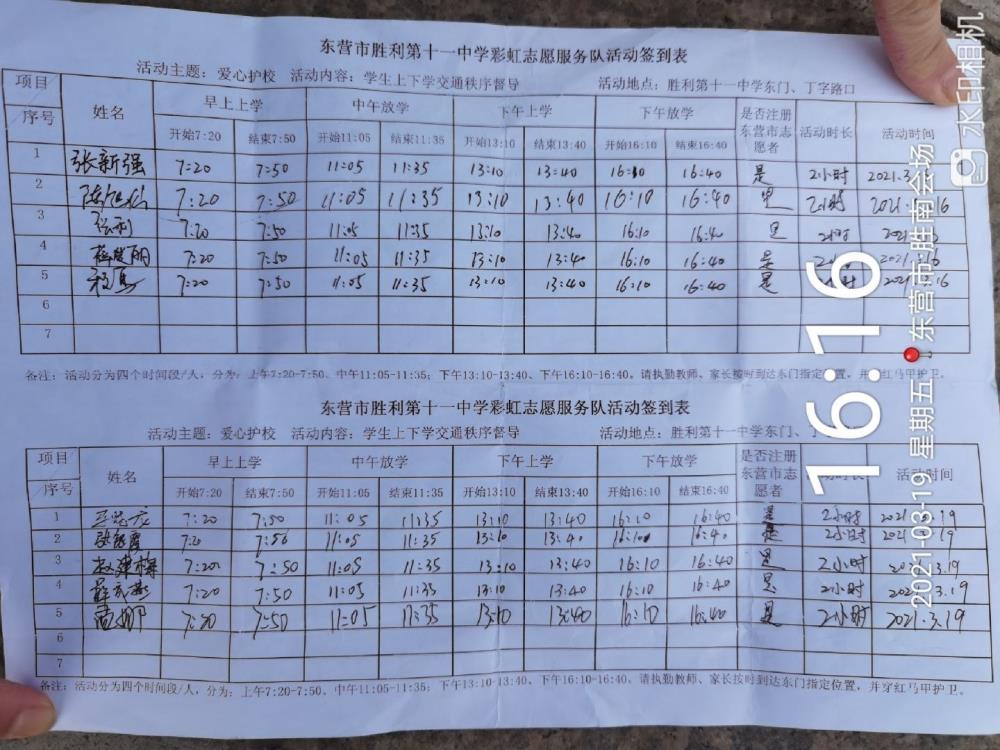 东营市胜利第十一中学彩虹志愿服务队活动签到表
活动主题：爱心护校 活动内容：学生上下学交通秩序督导 活动地点：胜利第十一中学东门、丁字路口
项目 序号 姓名 早上上学 中午放学 下午上学 下午放学 是否注册东营市志愿者 活动时长 活动时间
开始7:20 结束7:50 开始11:05 结束11:35 开始13:10 结束13:40 开始16:10 结束16:40
1 张新强 7:20 7:50 11:05 11:35 13:10 13:40 16:10 16:40 是 2小时 2021.3
2 7:20 7:50 11:05 11:35 13:10 13:40 16:10 16:40 是 2小时 2021 16
3 张利 7:20 7:50 11:05 11:35 13:10 13:40 16:10 16:40 是 2小时 2021
4 7:20 7:50 11:05 11:35 13:10 13:40 16:10 16:40 是 2021 16
5 7:20 7:50 11:05 11:35 13:10 13:40 16:10 16:40 是 时 2021 16
6
7
备注：活动分为四个时间段/人，分为：上午7:20-7:50、中午11:05-11:35；下午13:10-13:40、下午16:10-16:40。请执勤教师、家长按时到达东门指定位置，并穿红马甲护卫。
东营市胜利第十一中学彩虹志愿服务队活动签到表
活动主题：爱心护校 活动内容：学生上下学交通秩序督导 活动地点：胜利第十一中学东门、丁
项目 序号 姓名 早上上学 中午放学 下午上学 下午放学 是否注册东营市志愿者 时长 活动时间
开始7:20 结束7:50 开始11:05 结束11:35 开始13:10 结束13:40 开始16:10 结束16:40
1 7:20 7:50 11:05 11:35 13:10 13:40 16:10 16:40 是 2小时 2021 19
2 7:20 7:50 11:05 11:35 13:10 13:40 16:10 16:40 是 2小时 2021 19
3 赵建梅 7:20 7:50 11:05 11:35 13:10 13:40 16:10 16:40 是 2小时 3.19
4 7:20 7:50 11:05 11:35 13:10 13:40 16:10 16:40 是 2小时 3.19
5 7:20 7:50 11:05 11:35 13:10 13:40 16:10 16:40 是 2小时 2021.3.19
6
7
备注：活动分为四个时间段/人，分为：上午7:20-7:50、中午11:05-11:35；下午13:10-13:40、下午16:10-16:40。请执勤教师、家长按时到达东门指定位置，并穿红马甲护卫。
16:16
2021-03-19 星期五 东营市胜南会场
水印相机